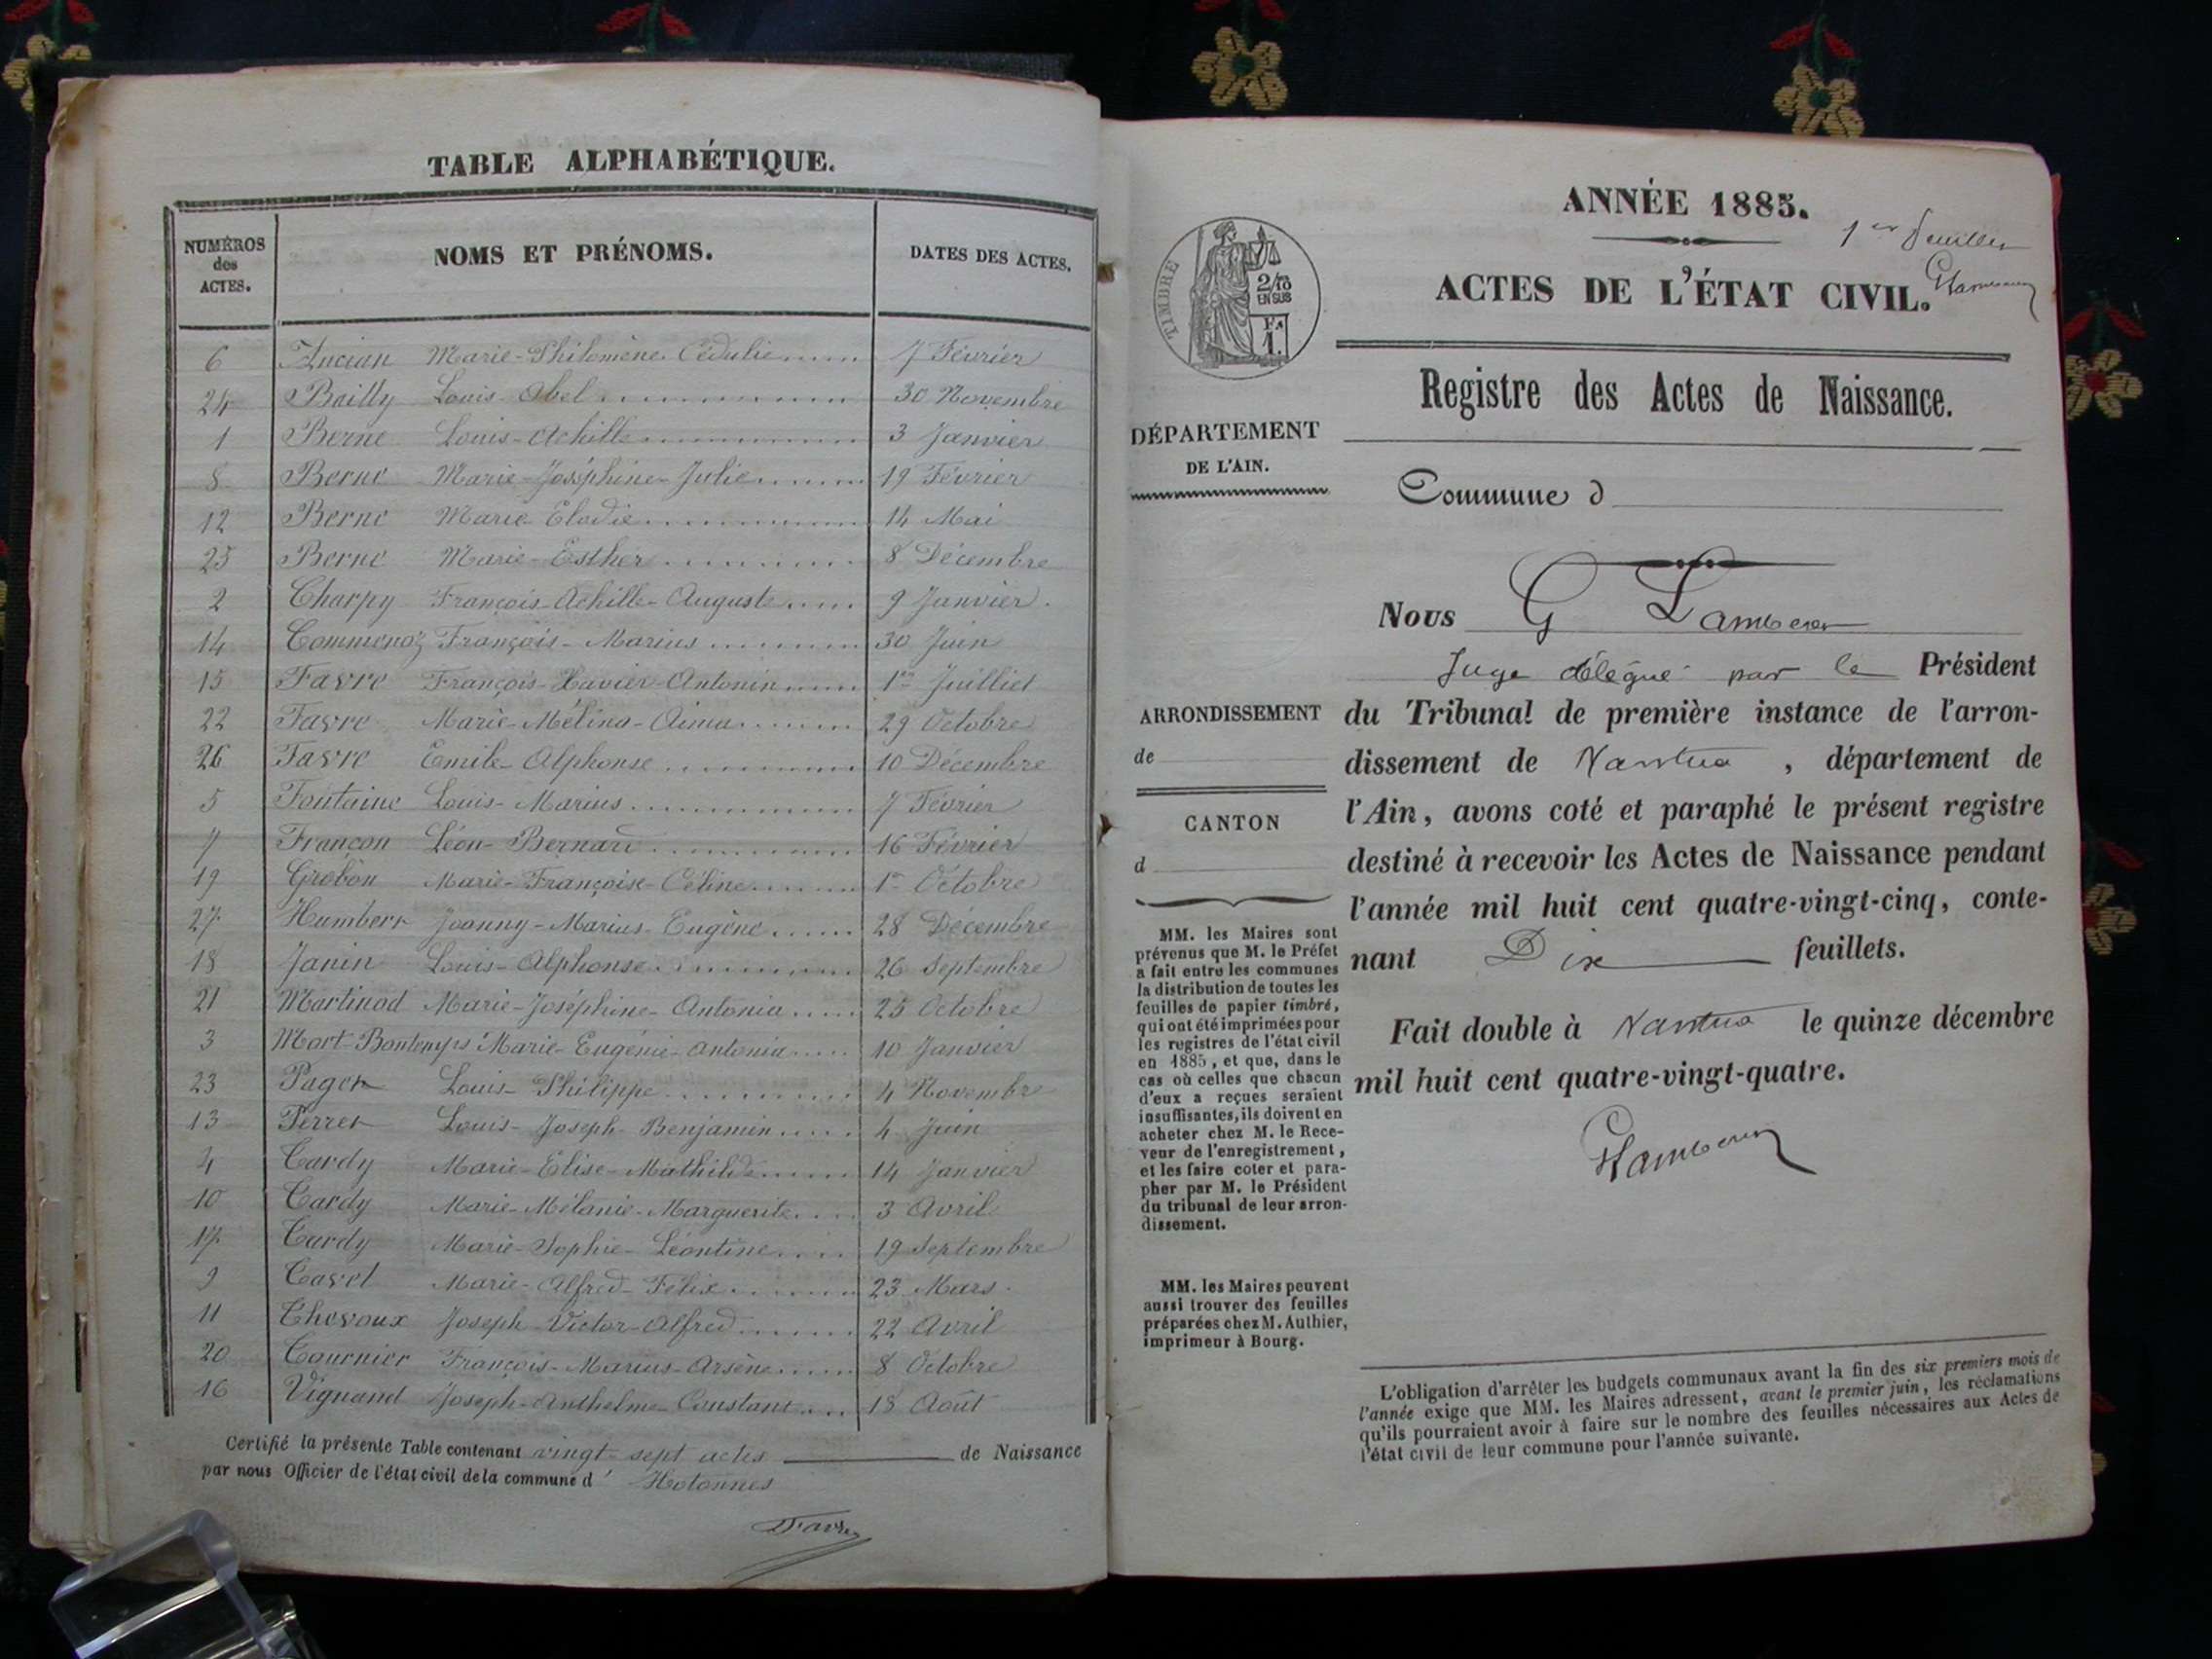 TABLE ALPHABÉTIQUE.
NUMÉROS des ACTES. NOMS ET PRÉNOMS. DATES DES ACTES.
6 Ancian Marie-Philomène Cédulie 7 Février
24 Bailly Louis Abel 30 Novembre
1 Berne Louis-Achille 3 Janvier
8 Berne Marie-Joséphine-Julie 19 Février
12 Berne Marie Elodie 14 Mai
25 Berne Marie-Esther 8 Décembre
2 Charpy François-Achille-Auguste 9 Janvier.
14 Commenoz François-Marius 30 Juin
15 Favre François-Xavier-Antonin 1er Juillet
22 Favre Marie-Mélina- 29 Octobre
26 Favre Emile-Alphonse 10 Décembre
5 Fontaine Louis-Marius 7 Février
7 Françon Léon-Bernard 16 Février
19 Grobon Marie-Françoise-Céline 1er Octobre
27 Humbert Joanny-Marius-Eugène 28 Décembre
18 Janin Louis-Alphonse 26 Septembre
21 Martinod Marie-Joséphine-Antonia 25 Octobre
3 Mort-Bontemps Marie-Eugénie-Antonia 10 Janvier
23 Paget Louis-Philippe 4 Novembre
13 Perret Louis-Joseph-Benjamin 4 Juin
4 Tardy Marie-Elise-Mathilde 14 Janvier
10 Tardy Marie-Mélanie-Marguerite 3 Avril
17 Tardy Marie-Sophie-Léontine 19 Septembre
9 Tavel Marie-Alfred-Félix 23 Mars.
11 Thevoux Joseph-Victor-Alfred 22 Avril
20 Tournier François-Marius-Arsène 8 Octobre
16 Vignand Joseph-Anthelme-Constant 18 Août
Certifié la présente Table contenant vingt-sept actes de Naissance
par nous Officier de l'état civil de la commune d'Hotonnes
Favre
ANNÉE 1885.
1er feuillet
GLambert
ACTES DE L'ÉTAT CIVIL.
TIMBRE
2/10
EN SUS
1.
Registre des Actes de Naissance.
DÉPARTEMENT
DE L'AIN.
Commune d
Nous G Lambert
Juge délégué par le Président
du Tribunal de première instance de l'arron-
dissement de Nantua, département de
l'Ain, avons coté et paraphé le présent registre
destiné à recevoir les Actes de Naissance pendant
l'année mil huit cent quatre-vingt-cinq, conte-
nant Dix feuillets.
Fait double à Nantua le quinze décembre
mil huit cent quatre-vingt-quatre.
GLambert
ARRONDISSEMENT
de
CANTON
d
MM. les Maires sont
prévenus que M. le Préfet
a fait entre les communes
la distribution de toutes les
feuilles de papier timbré,
qui ont été imprimées pour
les registres de l'état civil
en 1885, et que, dans le
cas où celles que chacun
d'eux a reçues seraient
insuffisantes, ils doivent en
acheter chez M. le Rece-
veur de l'enregistrement,
et les faire coter et para-
pher par M. le Président
du tribunal de leur arron-
dissement.
MM. les Maires peuvent
aussi trouver des feuilles
préparées chez M. Authier,
imprimeur à Bourg.
L'obligation d'arrêter les budgets communaux avant la fin des six premiers mois de
l'année exige que MM. les Maires adressent, avant le premier juin, les réclamations
qu'ils pourraient avoir à faire sur le nombre des feuilles nécessaires aux Actes de
l'état civil de leur commune pour l'année suivante.